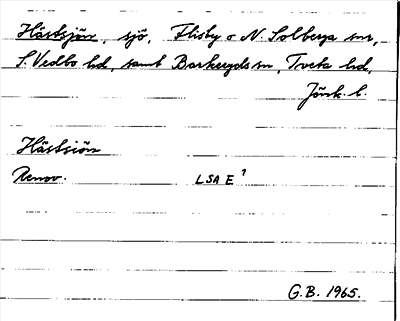 Hästsjön, sjö, Flisby o N. Solberga snr,
S. Vedbo hd, samt Barkeryds sn, Tveta hd,
Jönk. l.
Hästsiön
Renov. LSA E 7
G.B. 1965.